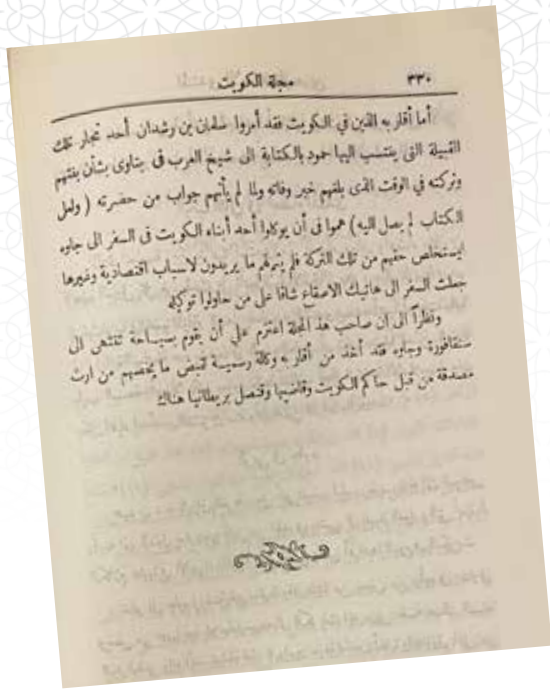 ٣٣٠ مجلة الكويت
أما أقاربه الذين في الكويت فقد أمروا سلمان بن رشدان أحد تجار تلك
القبيلة التي ينتسب اليها حمود بالكتابة الى شيخ العرب في بتاوى بشأن بنتهم
وتركته في الوقت الذى بلغهم خبر وفاته ولما لم يأتهم جواب من حضرته ( ولعل
الكتاب لم يصل اليه ) هموا فى أن يوكلوا أحد أبناء الكويت فى السفر الى جاوه
ليستخلص حقهم من تلك التركة فلم يتم لهم ما يريدون لاسباب اقتصادية وغيرها
جعلت السفر الى هاتيك الاصقاع شاقا على من حاولوا توكيله
ونظراً الى ان صاحب هذه المجلة اعتزم على أن يقوم بسياحة تنتهى الى
سنقافورة وجاوه فقد أخذ من أقاربه وكالة رسمية تخص ما يخصهم من ارث
مصدقة من قبل حاكم الكويت وقاضيها وقنصل بريطانيا هناك